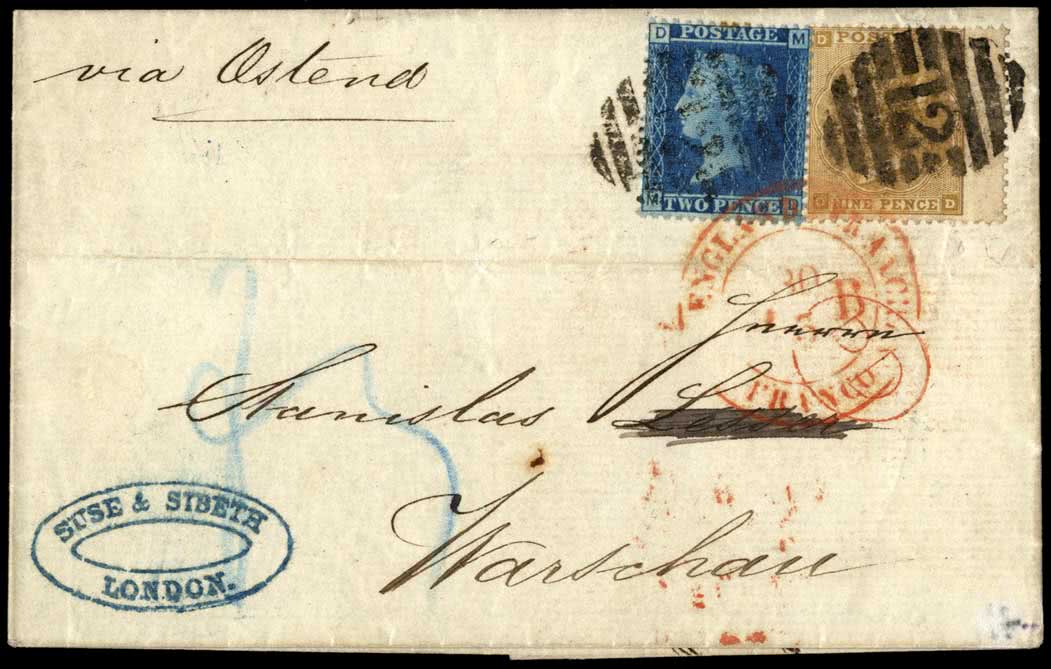 via Ostend
D POSTAGE M
M TWO PENCE D
D
O NINE PENCE D
12
ENGLAND
B
FRANCO
Stanislas
Warschau
SUSE & SIBETH
LONDON.